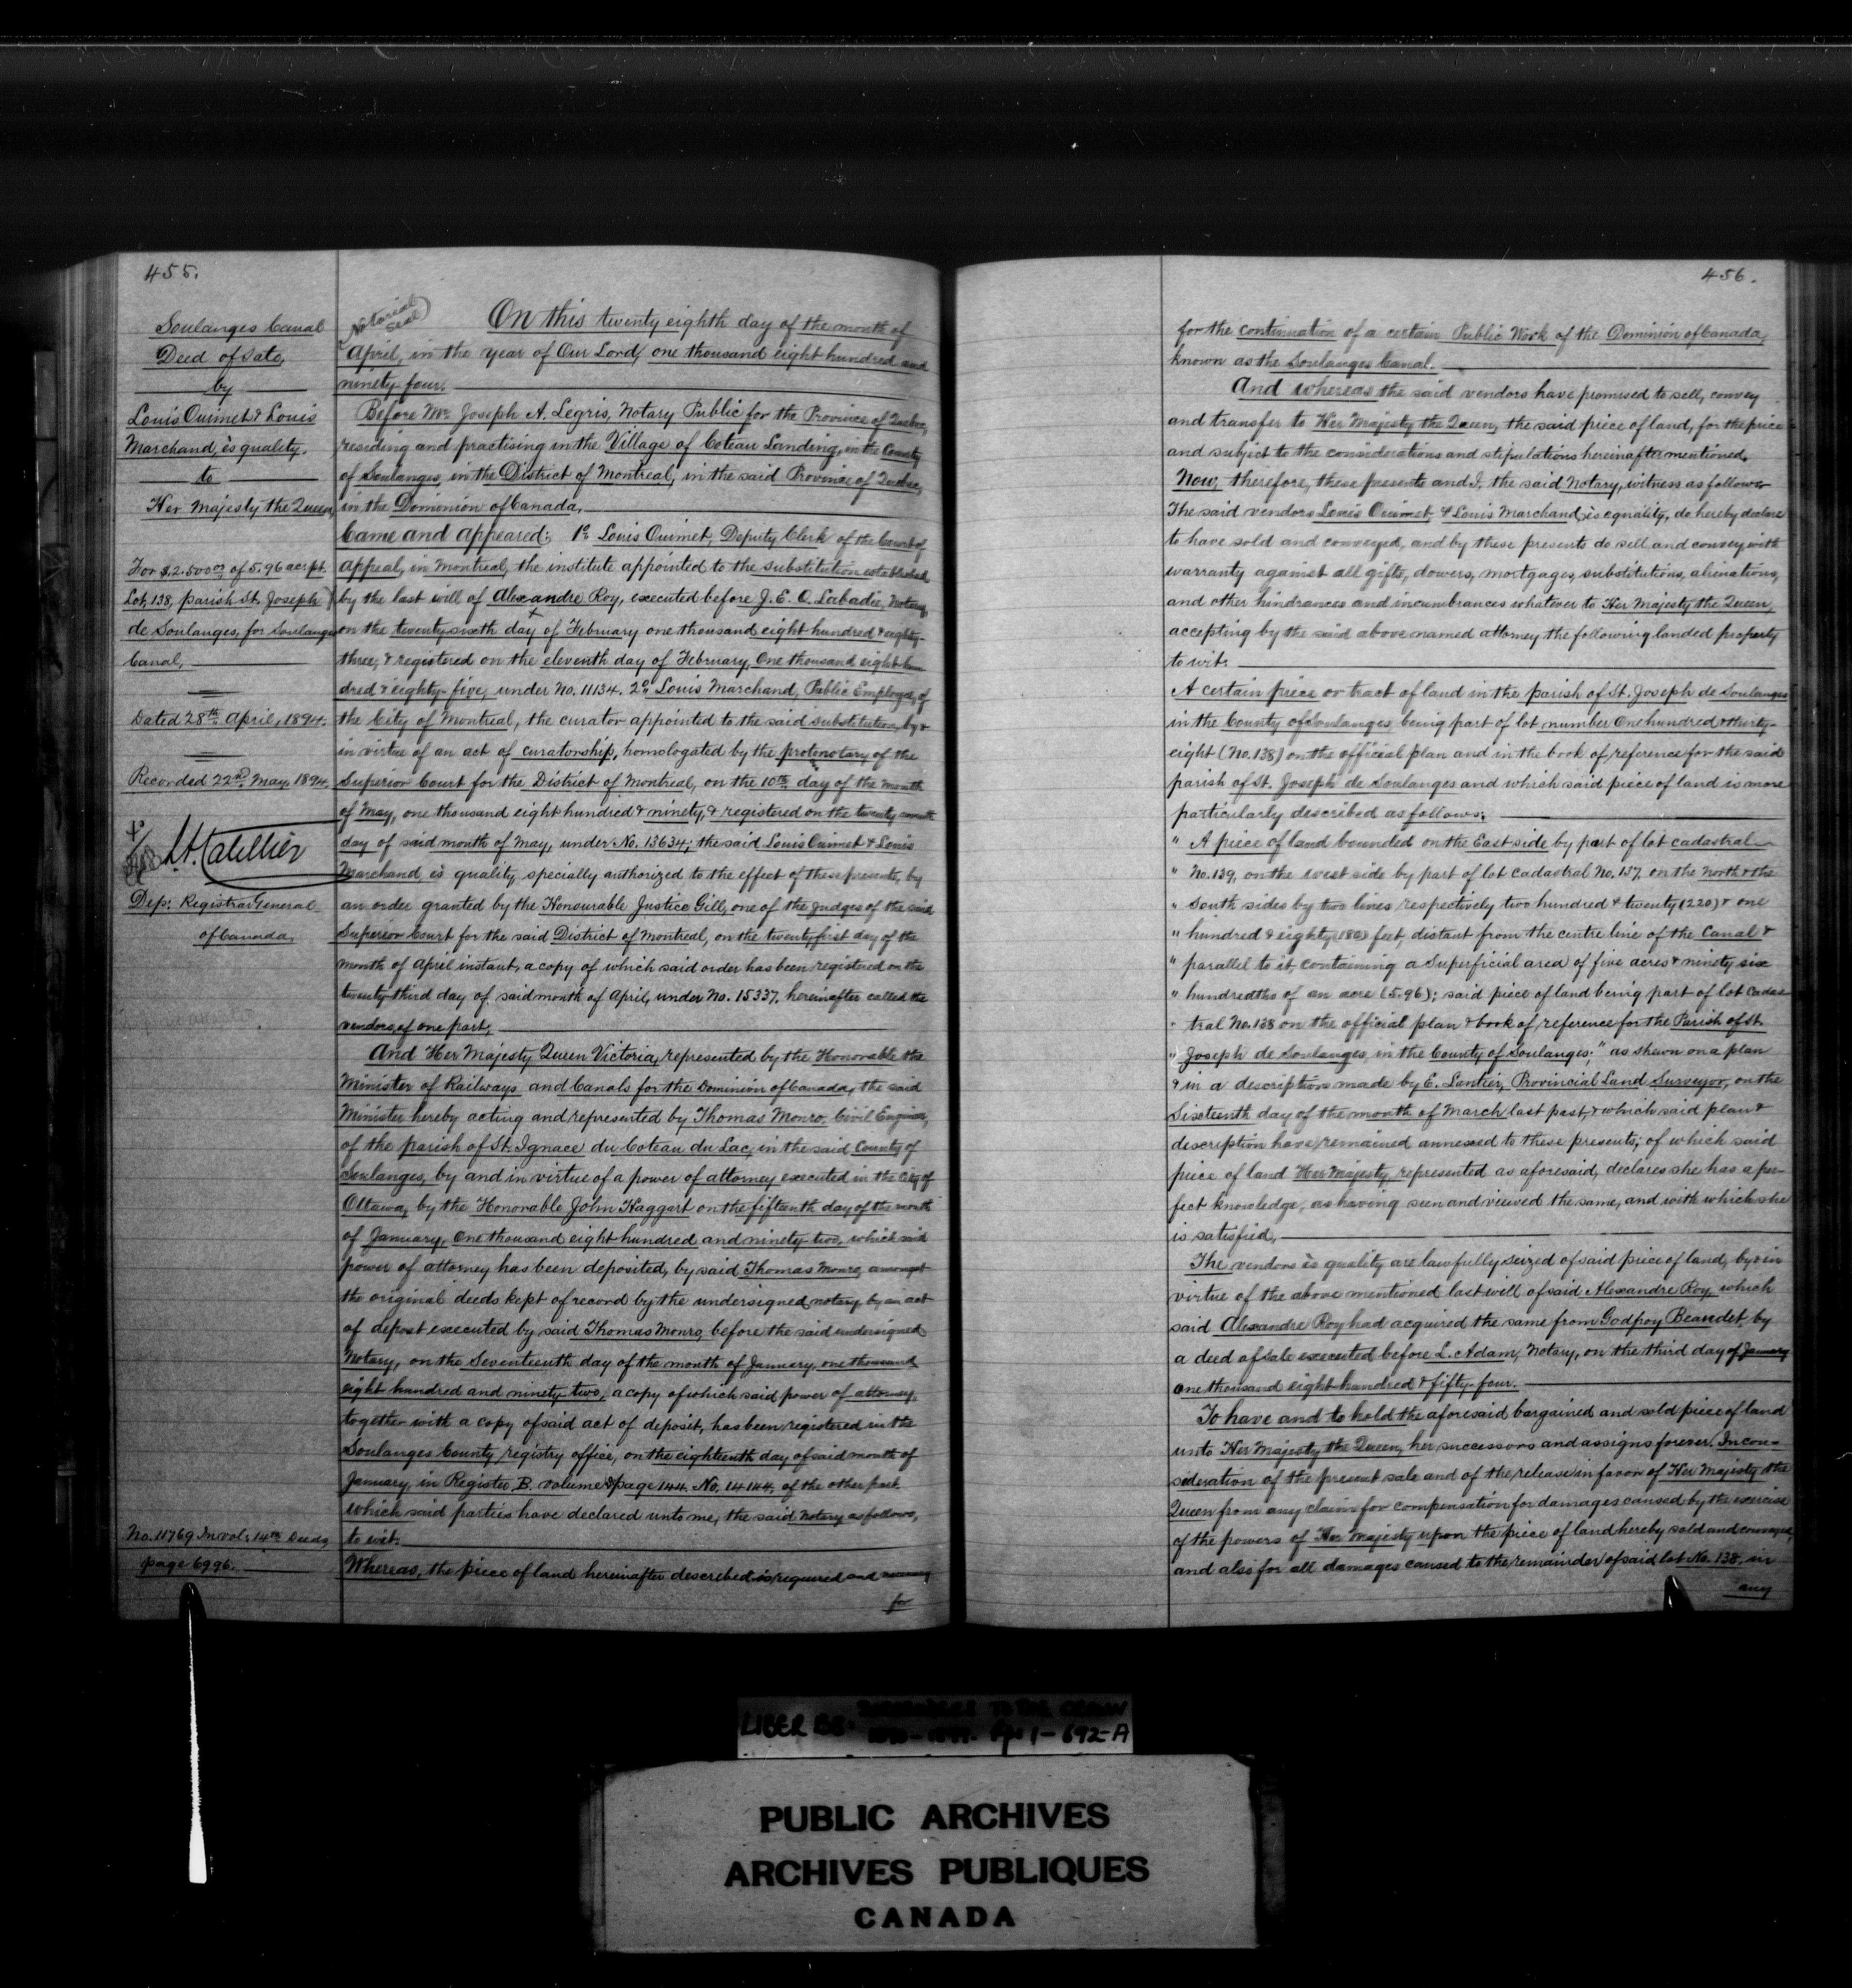 455.
Soulanges Canal
Deed of Sale,
by
Louis Ouimet & Louis
Marchand, ès qualité.
to
Her Majesty the Queen,
For $2.500.00 of 5.96 acs pt.
Lot, 138, parish St. Joseph
de Soulanges, for Soulanges
Canal,
Dated 28th April, 1894.
Recorded 22nd May, 1894.
Dep: Registrar General
of Canada,
No. 11769 In vol: 14th Deeds
page 6996.
Notarial
Seal
On this twenty eighth day of the month of
April, in the year of Our Lord, one thousand eight hundred and
ninety-four.
Before Mtre Joseph A. Legris, Notary Public for the Province of Quebec,
residing and practising in the Village of Coteau Landing, in the County
of Soulanges, in the District of Montreal, in the said Province of Quebec,
in the Dominion of Canada,
Came and appeared: 1o Louis Ouimet, Deputy Clerk of the Court of
Appeal, in Montreal, the institute appointed to the substitution established
by the last will of Alexandre Roy, executed before J. E. O. Labadie, Notary,
on the twenty sixth day of February one thousand eight hundred & eighty-
three, & registered on the eleventh day of February, One thousand eight hun-
dred & eighty-five, under No. 11134. 2o Louis Marchand, Public Employé, of
the City of Montreal, the curator appointed to the said substitution, by &
in virtue of an act of curatorship, homologated by the protonotary of the
Superior Court for the District of Montreal, on the 10th day of the month
of May, one thousand eight hundred & ninety, & registered on the twenty
day of said month of May, under No. 13634; the said Louis Ouimet & Louis
Marchand, ès qualité, specially authorized to the effect of these presents, by
an order granted by the Honourable Justice Gill, one of the Judges of the said
Superior Court for the said District of Montreal, on the twenty first day of the
month of April instant, a copy of which said order has been registered on the
twenty-third day of said month of April, under No. 15337, hereinafter called the
vendors, of one part,
And Her Majesty Queen Victoria, represented by the Honorable the
Minister of Railways and Canals for the Dominion of Canada, the said
Minister hereby acting and represented by Thomas Monro, Civil Engineer,
of the parish of St. Ignace du Coteau du Lac, in the said County of
Soulanges, by and in virtue of a power of attorney executed in the City of
Ottawa, by the Honorable John Haggart on the fifteenth day of the month
of January, One thousand eight hundred and ninety-two, which said
power of attorney has been deposited, by said Thomas Monro, amongst
the original deeds kept of record by the undersigned notary by an act
of deposit executed by said Thomas Monro, before the said undersigned
Notary, on the Seventeenth day of the month of January, one thousand
eight hundred and ninety-two, a copy of which said power of attorney,
together with a copy of said act of deposit, has been registered in the
Soulanges County registry office, on the eighteenth day of said month of
January, in Register B. volume page 144. No. 14144, of the other part
which said parties have declared unto me, the said Notary as follows,
to wit:
Whereas, the piece of land hereinafter described is required and necessary
for
456.
for the continuation of a certain Public Work of the Dominion of Canada,
known as the Soulanges Canal.
And whereas the said vendors have promised to sell, convey
and transfer to Her Majesty the Queen, the said piece of land, for the price
and subject to the considerations and stipulations hereinafter mentioned.
Now, therefore, these presents and I, the said Notary, witness as follows
The said vendors Louis Ouimet & Louis Marchand, ès qualité, do hereby declare
to have sold and conveyed, and by these presents do sell and convey with
warranty against all gifts, dowers, mortgages, substitutions, alienations,
and other hindrances and incumbrances whatever to Her Majesty the Queen,
accepting by the said above named attorney the following landed property
to wit:
A certain piece or tract of land in the parish of St. Joseph de Soulanges
in the County of Soulanges, being part of lot number One hundred & thirty-
eight (No. 138) on the official plan and in the book of reference for the said
parish of St. Joseph de Soulanges and which said piece of land is more
particularly described as follows:
" A piece of land bounded on the East side by part of lot cadastral
" No. 139, on the west side by part of lot cadastral No. 137, on the North & the
" South sides by two lines respectively two hundred & twenty (220) & one
" hundred & eighty (180) feet, distant from the centre line of the Canal &
" parallel to it, containing a Superficial area of five acres & ninety six
" hundredths of an acre (5.96); said piece of land being part of lot Cadas-
" tral No. 138 on the official plan & book of reference for the Parish of St.
" Joseph de Soulanges, in the County of Soulanges;" as shewn on a plan
& in a description made by E. Lantier, Provincial Land Surveyor, on the
Sixteenth day of the month of March last past, & which said plan &
description have remained annexed to these presents; of which said
piece of land Her Majesty, represented as aforesaid, declares she has a per-
fect knowledge, as having seen and viewed the same, and with which she
is satisfied,
The vendors ès qualité are lawfully seized of said piece of land, by & in
virtue of the above mentioned last will of said Alexandre Roy, which
said Alexandre Roy had acquired the same from Godfroy Beaudet, by
a deed of sale executed before L. Adam, Notary, on the third day of January
one thousand eight hundred & fifty-four.
To have and to hold the aforesaid bargained and sold piece of land
unto Her Majesty the Queen, her successors and assigns forever. In con-
sideration of the present sale and of the release in favor of Her Majesty the
Queen from any claim for compensation for damages caused by the exercise
of the powers of Her Majesty upon the piece of land hereby sold and conveyed,
and also for all damages caused to the remainder of said lot No. 138, in
any
PUBLIC ARCHIVES
ARCHIVES PUBLIQUES
CANADA